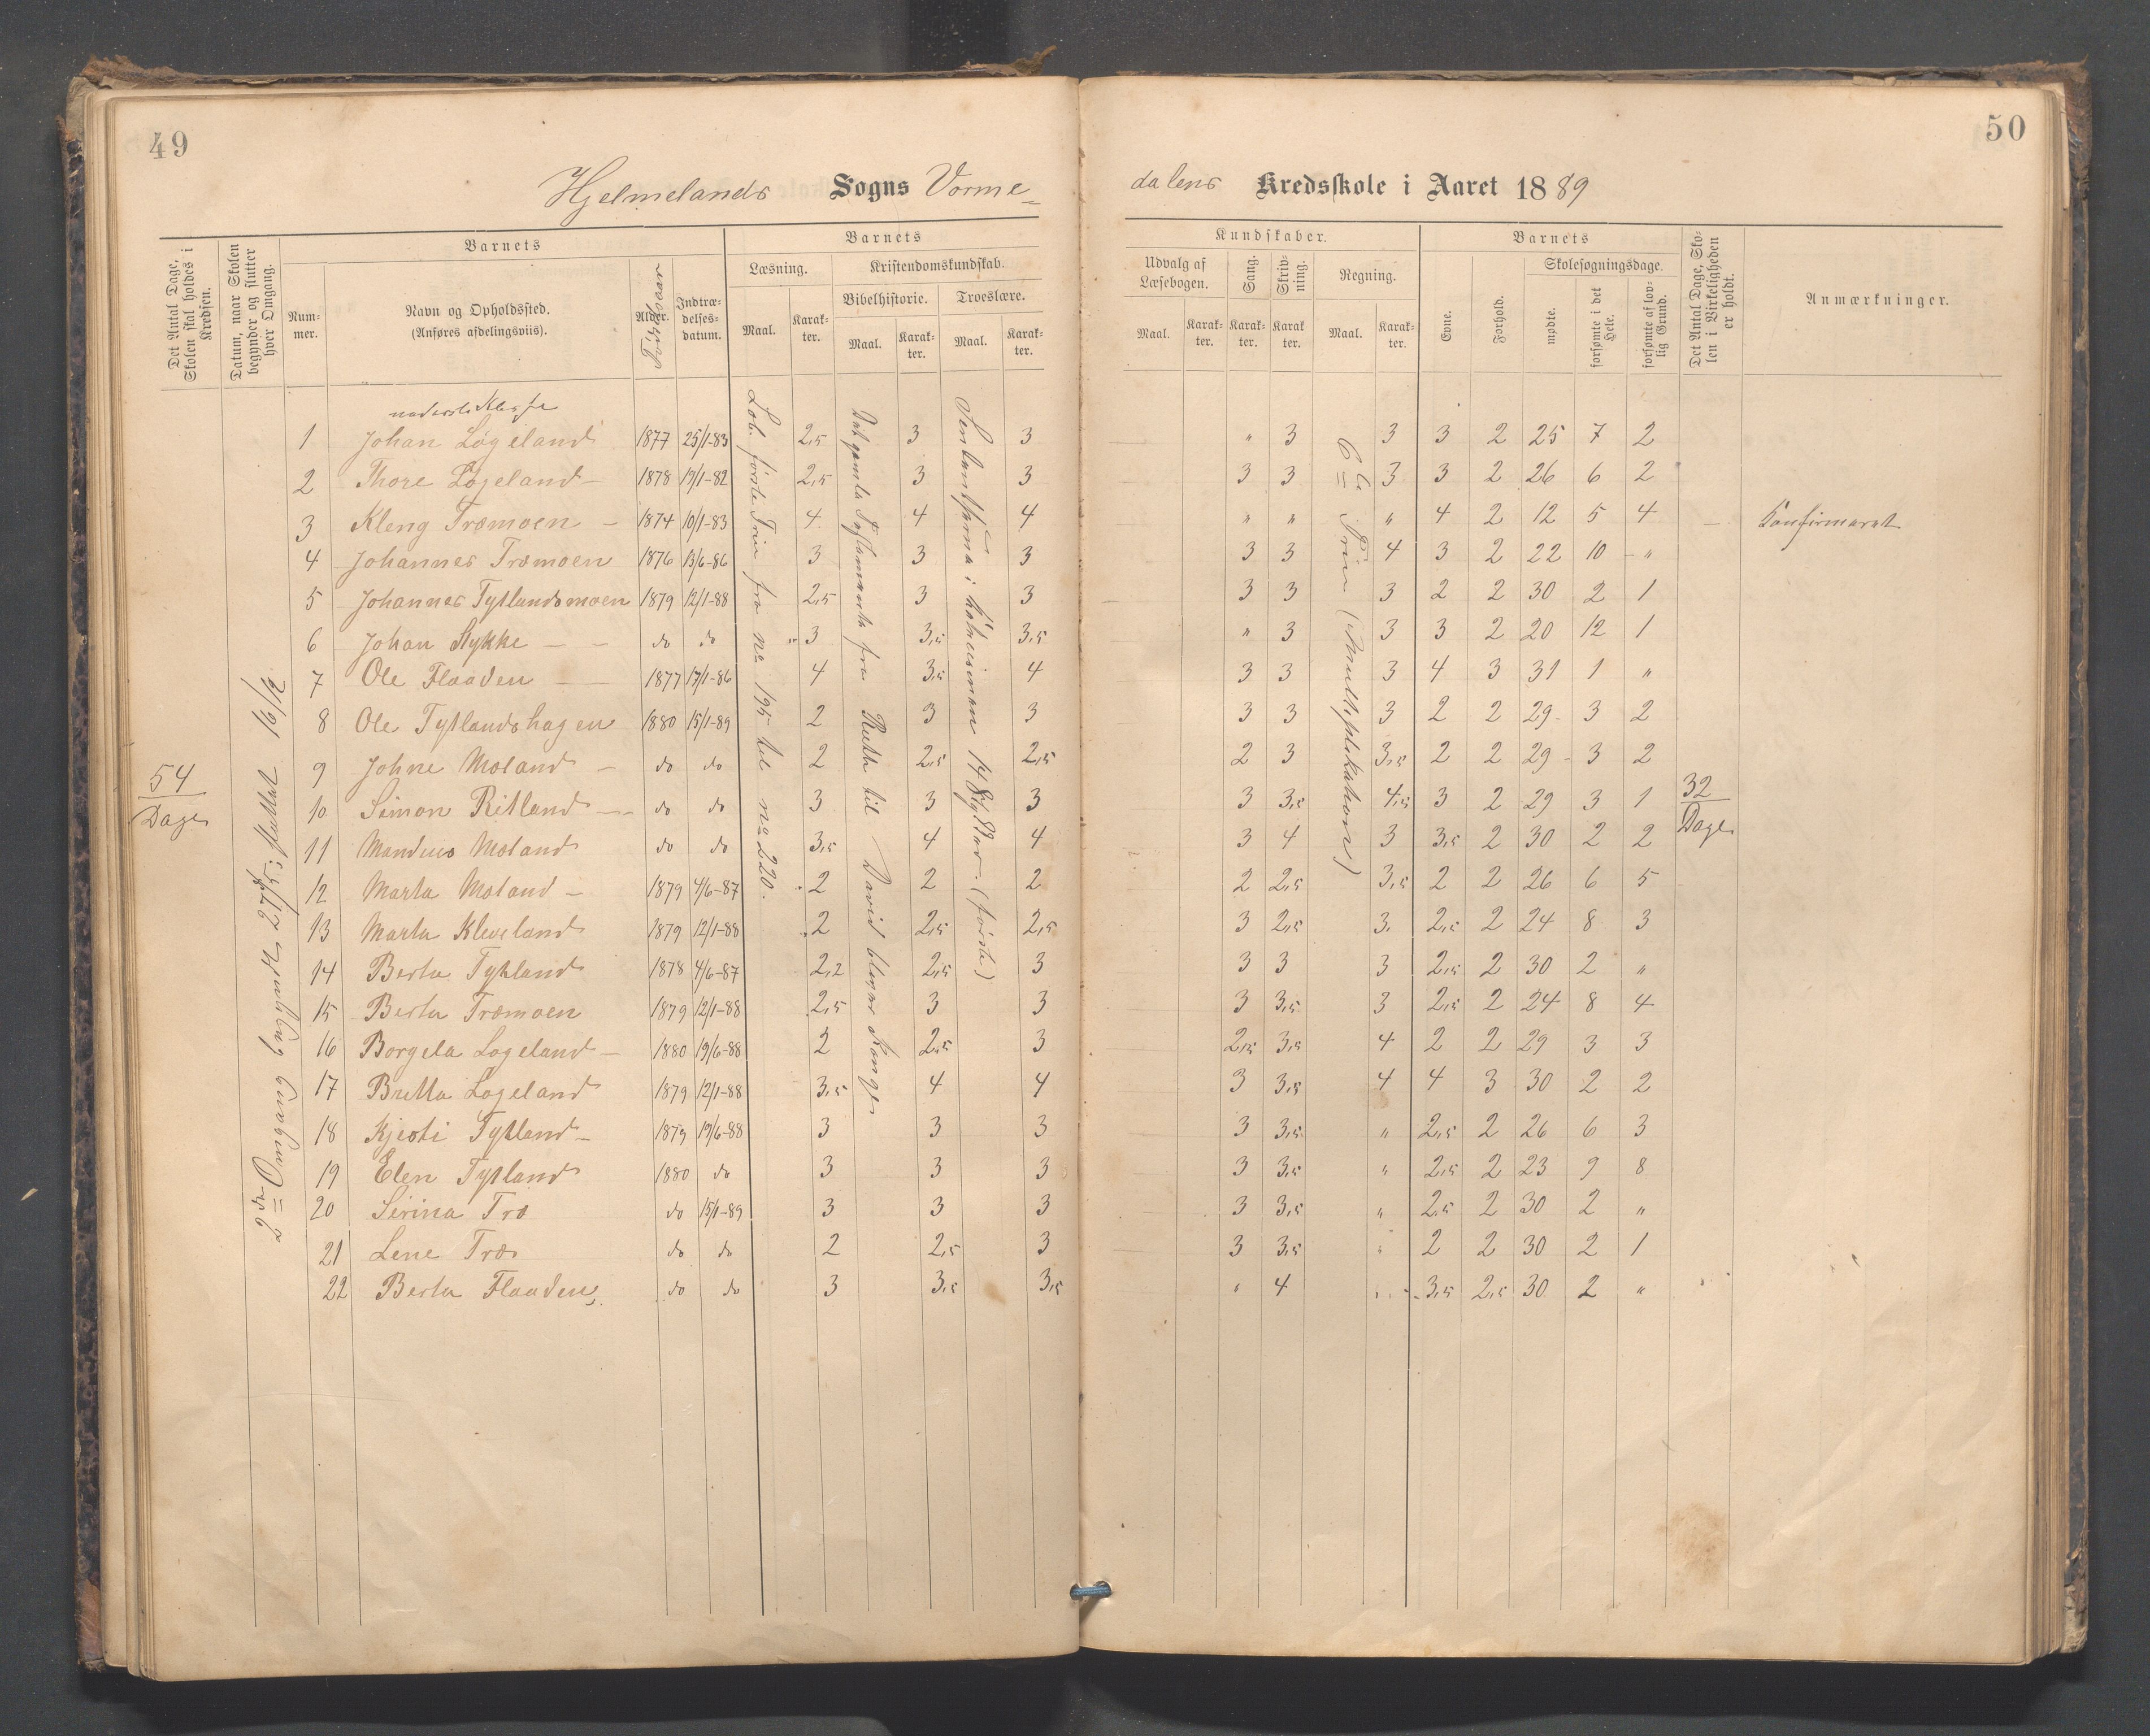 49
50
Hjelmelands Sogns Vorme-
dalens Kredsskole i Aaret 1889
Det Antal Dage, Skolen skal holdes i Kredsen.
Datum, naar Skolen begynder og slutter hver Omgang.
Barnets
Barnets
Kundskaber.
Barnets
Det Antal Dage, Skolen i Virkeligheden er holdt.
Anmærkninger.
Nummer.
Navn og Opholdssted. (Anføres afdelingsviis).
Alder.
Indtrædelsesdatum.
Læsning.
Kristendomskundskab.
Bibelhistorie.
Troeslære.
Maal. Karakter. Maal. Karakter. Maal. Karakter.
Udvalg af Læsebogen.
Sang.
Skrivning.
Regning.
Maal. Karakter. Karakter. Karakter Maal. Karakter.
Evne.
Forhold.
Skolesøgningsdage.
mødte.
forsømte i det Hele.
forsømte af lovlig Grund.
54
Dage
2den Omgang begyndt 27/5; sluttet 16/12
Læb. første Trin fra No 195 til No 220.
Det gamle Testamente fra Ruth til David bliver Konge
14 Stykker (første)
6te Trin (Multiplikation)
32
Dage
nederste Klasse
1 Johan Løgeland 1877 25/1-83 2,5 3 3 " 3 3 3 2 25 7 2
2 Thore Løgeland 1878 19/1-82 2,5 3 3 3 3 3 3 2 26 6 2
3 Kleng Træmoen 1874 10/1-83 4 4 4 " " " 4 2 12 5 4 Konfirmeret
4 Johannes Træmoen 1876 13/6-86 3 3 3 3 3 4 3 2 22 10 "
5 Johannes Tytlandsmoen 1879 12/1-88 2,5 3 3 3 3 3 2 2 30 2 1
6 Johan Rykke do do 3 3,5 3,5 " 3 3 3 2 20 12 1
7 Ole Flaaden 1877 17/1-86 4 3,5 4 3 3 3 4 3 31 1 "
8 Ole Tytlandshagen 1880 15/1-89 2 3 3 3 3 3 2 2 29 3 2
9 Johne Moland do do 2 2,5 2,5 2 3 3,5 2 2 29 3 2
10 Simon Ritland do do 3 3 3 3 3,5 4,5 3 2 29 3 1
11 Mandius Moland do do 3,5 4 4 3 4 3 3,5 2 30 2 2
12 Marta Moland 1879 4/6-87 2 2 2 2 2,5 3,5 2 2 26 6 5
13 Marta Kleveland 1879 12/1-88 2 2,5 2,5 3 2,5 3. 2,5 2 24 8 3
14 Berta Tytland 1878 4/6-87 2,2 2,5 3 3 3 3 2,5 2 30 2 "
15 Berta Træmoen 1879 12/1-88 2,5 3 3 3 3,5 3 2,5 2 24 8 4
16 Borgela Løgeland 1880 19/6-88 2 2,5 3 2,5 3,5 4 2 2 29 3 3
17 Britta Løgeland 1879 12/1-88 3,5 4 4 3 3,5 4 4 3 30 2 2
18 Kjesti Tytland 1879 19/6-88 3 3 3 3 3,5 " 2,5 2 26 6 3
19 Elen Tytland 1880 do 3 3 3 3 3,5 " 2,5 2 23 9 8
20 Sirina Træ do 15/1-89 3 3 3 3 3,5 " 2,5 2 30 2 "
21 Lene Træ do do 2 2,5 3 3 3,5 " 2 2 30 2 1
22 Berta Flaaden do do 3 3,5 3,5 " 4 " 3,5 2,5 30 2 "